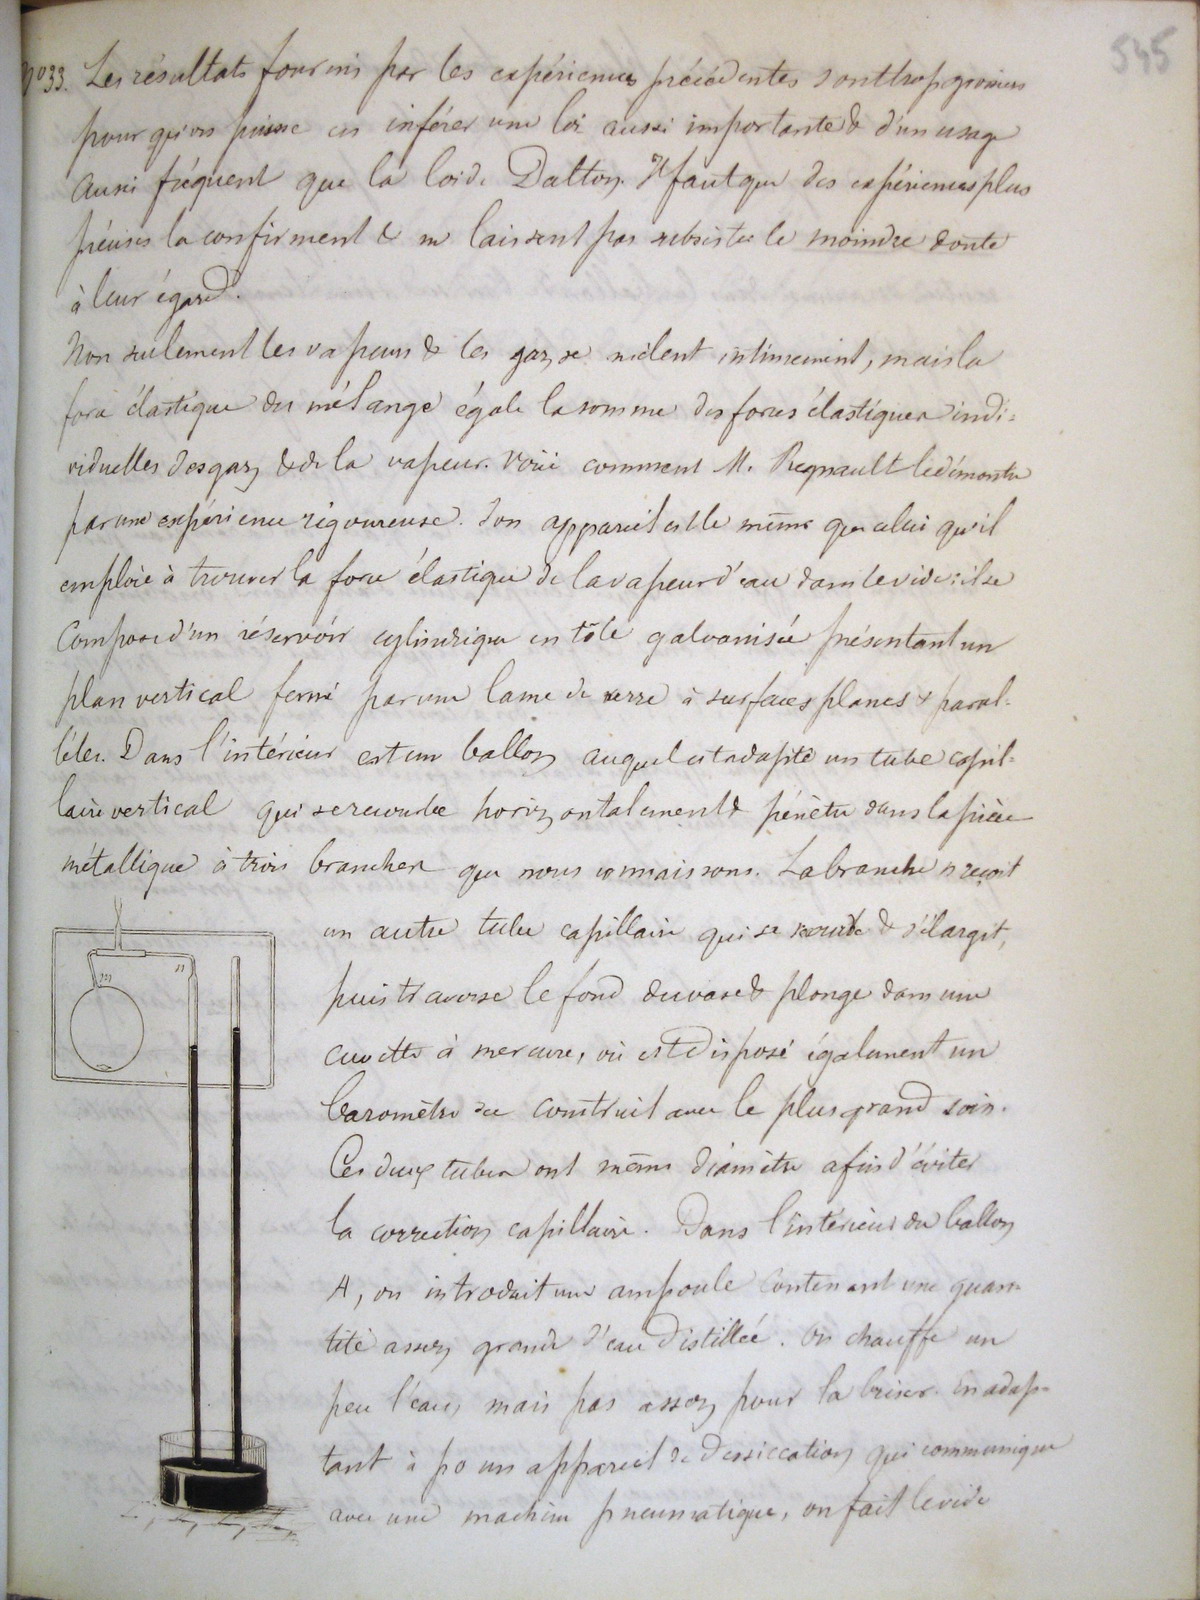 545
N° 33. Les résultats fournis par les expériences précédentes sont trop grossiers
pour qu'on puisse en inférer une loi aussi importante & d'un usage
aussi fréquent que la loi de Dalton. Il faut que des expériences plus
précises la confirment & ne laissent pas subsister le moindre doute
à leur égard.
Non seulement les vapeurs & les gaz se mêlent intimement, mais la
force élastique du mélange égale la somme des forces élastiques indi-
viduelles des gaz & de la vapeur. Voici comment M. Regnault le démontre
par une expérience rigoureuse. Son appareil est le même que celui qu'il
emploie à trouver la force élastique de la vapeur d'eau dans le vide : il se
compose d'un réservoir cylindrique en tôle galvanisée présentant un
plan vertical fermé par une lame de verre à surfaces planes & paral-
lèles. Dans l'intérieur est un ballon auquel est adapté un tube capil-
laire vertical qui se recourbe horizontalement & pénètre dans la pièce
métallique à trois branches que nous connaissons. La branche n reçoit
un autre tube capillaire qui se recourbe & s'élargit,
puis traverse le fond du vase & plonge dans une
cuvette à mercure, où est disposé également un
baromètre sec construit avec le plus grand soin.
Ces deux tubes ont même diamètre afin d'éviter
la correction capillaire. Dans l'intérieur du ballon
A, on introduit une ampoule contenant une quan-
tité assez grande d'eau distillée. On chauffe un
peu l'eau, mais pas assez pour la briser. En adap-
tant à po un appareil de dessiccation qui communique
avec une machine pneumatique, on fait le vide